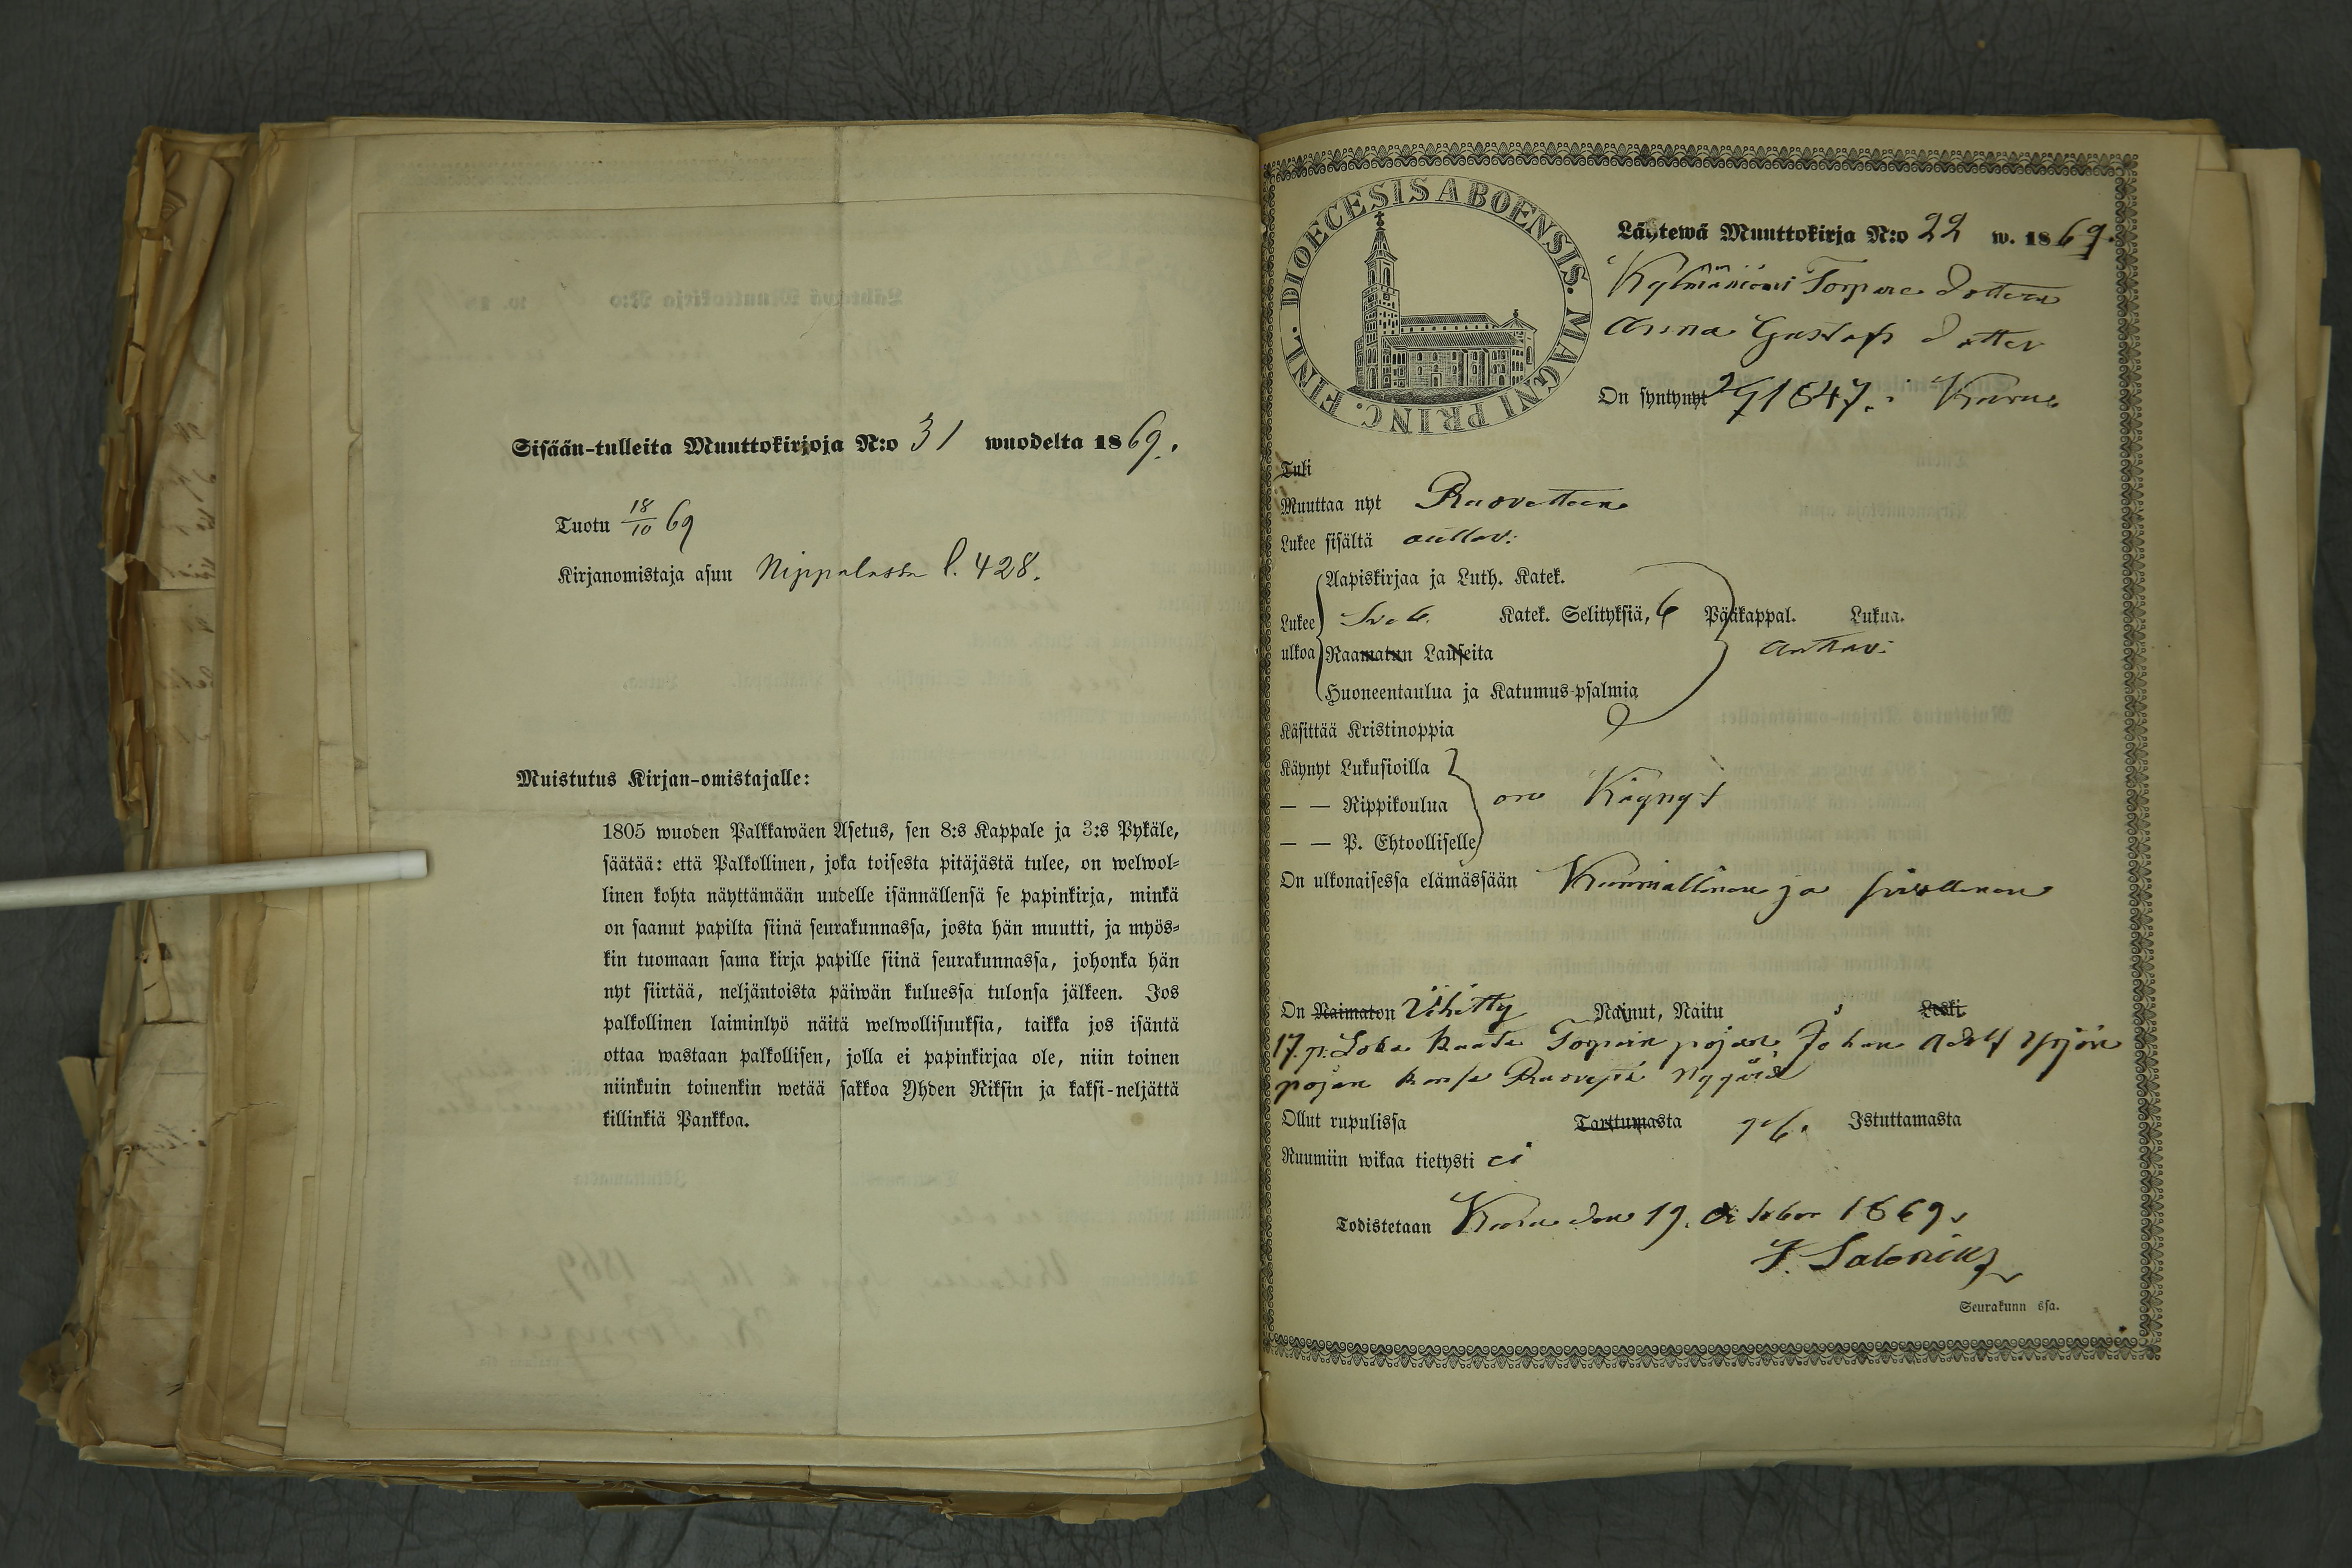 Sisään-tulleita Muuttokirjoja N:o 31 wuodelta 1869.
Tuotu 18/10 69
Kirjanomistaja asuu Nippalassa l. 428.
Muistutus Kirjan-omistajalle:
1805 wuoden Palkkawäen Asetus, sen 8:s Kappale ja 3:s Pykäle,
säätää: että Palkollinen, joka toisesta pitäjästä tulee, on welwol-
linen kohta näyttämään uudelle isännällensä se papinkirja, minkä
on saanut papilta siinä seurakunnassa, josta hän muutti, ja myös-
kin tuomaan sama kirja papille siinä seurakunnassa, johonka hän
nyt siirtää, neljäntoista päiwän kuluessa tulonsa jälkeen. Jos
palkollinen laiminlyö näitä welwollisuuksia, taikka jos isäntä
ottaa wastaan palkollisen, jolla ei papinkirjaa ole, niin toinen
niinkuin toinenkin wetää sakkoa Yhden Riksin ja kaksi-neljättä
killinkiä Pankkoa.
DIOECESIS ABOENSIS. MAGNI PRINC. FINL.
Lähtewä Muuttokirja N:o 22 w. 1869.
Torpare dottern
Anna Gustafs dotter
On syntynyt 1847. i Kuru
Tuli
Muuttaa nyt Ruoveteen
Lukee sisältä auttav:
Aapiskirjaa ja Luth. Katek.
Lukee Sv. 6. Katek. Selityksiä, 6 Pääkappal. Lukua.
ulkoa Raamatun Lauseita auttav:
Huoneentaulua ja Katumus-psalmia
Käsittää Kristinoppia
Käynyt Lukusioilla
— — Rippikoulua on Käynyt
— — P. Ehtoolliselle
On ulkonaisessa elämässään Kunniallinen ja siivollinen
On Naimaton Vihitty Nainut, Naitu Leski
17. p. Loka kuuta Torparin pojan Johan Adolf Yrjön
pojan kansa Ruovesi
Ollut rupulissa Tarttumasta Istuttamasta
Ruumiin wikaa tietysti ei
Todistetaan Kuru den 19. October 1869.
Seurakunn ssa.